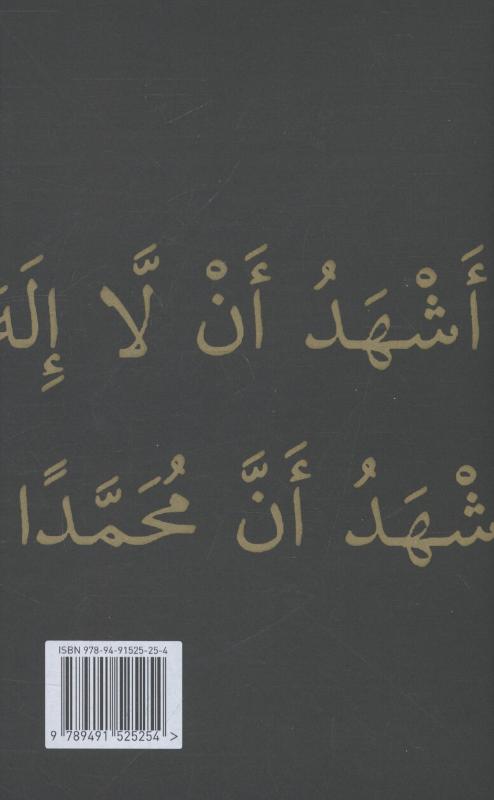 أَشْهَدُ أَنْ لَّا إِلَهَ
شْهَدُ أَنَّ مُحَمَّدًا
ISBN 978-94-91525-25-4
9 789491 525254 >